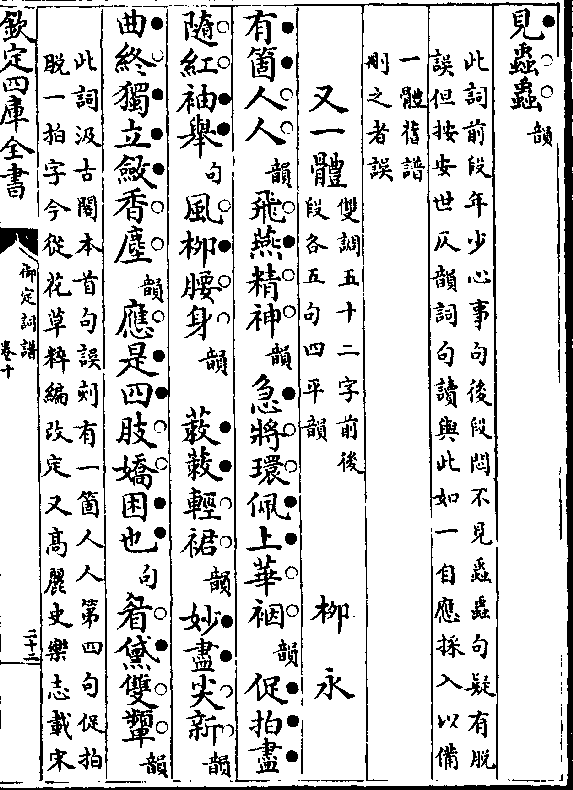 見蟲蟲韻
此詞前段年少心事句後段悶不見蟲蟲句疑有脫
誤但按安世仄韻詞句讀與此如一自應採入以備
一體舊譜
刪之者誤
又一體 雙調五十二字前後
段各五句四平韻 柳永
有箇人人韻飛燕精神韻急將環佩上華裀韻促拍盡
隨紅袖舉句風柳腰身韻 蔌蔌輕裙韻妙盡尖新韻
曲終獨立斂香塵韻應是四肢嬌困也句眉黛雙顰韻
此詞汲古閣本首句誤刻有一箇人人第四句促拍
脫一拍字今從花草粹編改定又高麗史樂志載宋
欽定四庫全書
御定詞譜
卷十
二十二